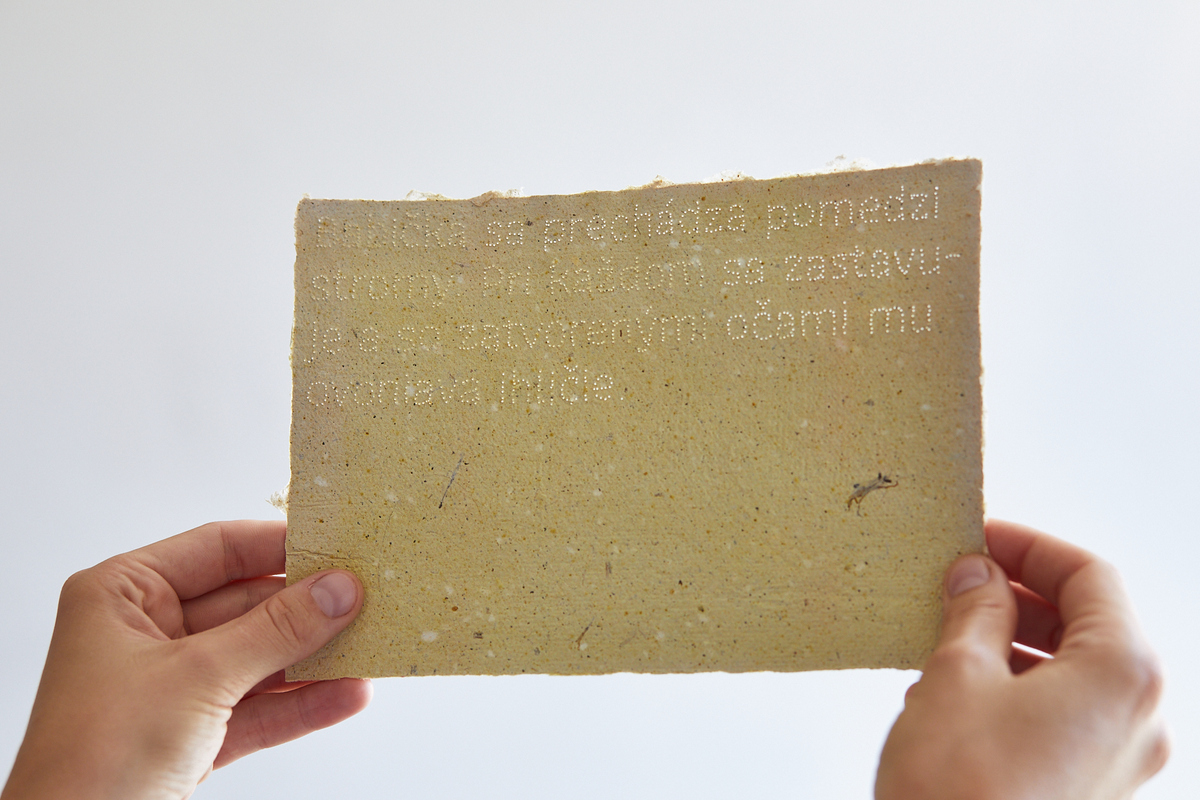 Babička sa prechádza pomedzi
stromy. Pri každom sa zastavu-
je a so zatvorenými očami mu
ovoniava ihličie.